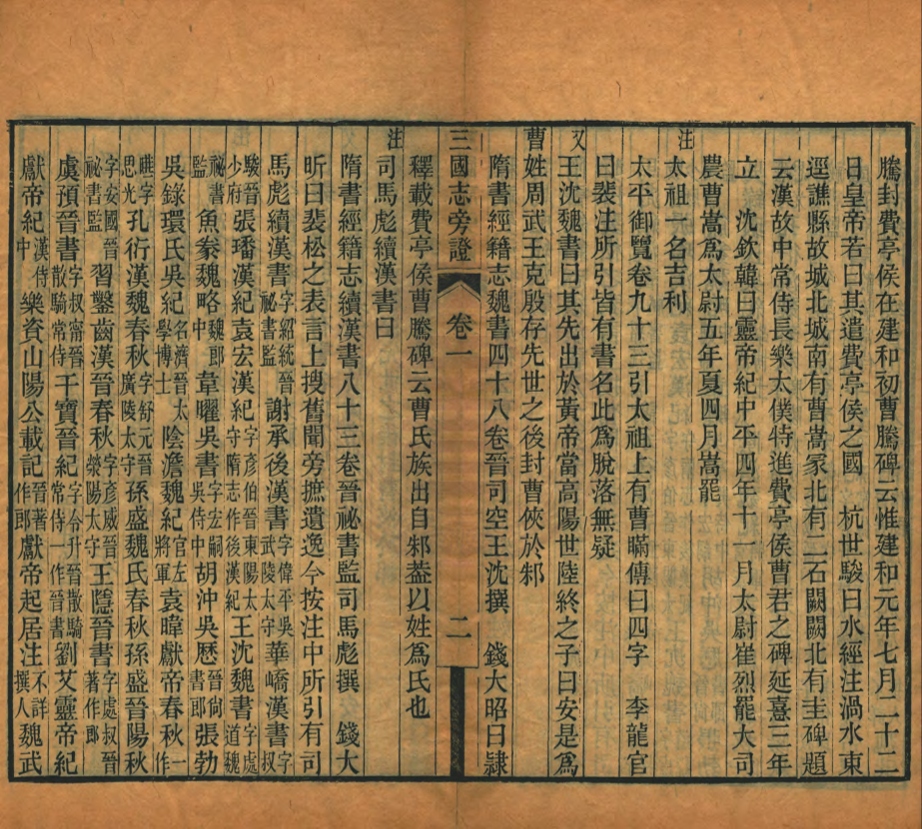 騰封費亭侯在建和初曹騰碑云惟建和元年七月二十二
日皇帝若曰其遣費亭侯之國　杭世駿曰水經注渦水東
逕譙縣故城北城南有曹嵩冢北有二石闕闕北有圭碑題
云漢故中常侍長樂太僕特進費亭侯曹君之碑延熹三年
立　沈欽韓曰靈帝紀中平四年十一月太尉崔烈罷大司
農曹嵩爲太尉五年夏四月嵩罷
注太祖一名吉利
太平御覽卷九十三引太祖上有曹瞞傳曰四字　李龍官
曰裴注所引皆有書名此爲脫落無疑
又王沈魏書曰其先出於黃帝當高陽世陸終之子曰安是爲
曹姓周武王克殷存先世之後封曹俠於邾
隋書經籍志魏書四十八卷晉司空王沈撰　錢大昭曰隷
三國志旁證　卷一　二
釋載費亭侯曹騰碑云曹氏族出自邾葢以姓爲氏也
注司馬彪續漢書曰
隋書經籍志續漢書八十三卷晉祕書監司馬彪撰　錢大
昕曰裴松之表言上搜舊聞旁摭遺逸今按注中所引有司
馬彪續漢書字紹統晉祕書監謝承後漢書字偉平吳武陵太守華嶠漢書字叔
駿晉少府張璠漢紀袁宏漢紀字彥伯晉東陽太守隋志作後漢紀王沈魏書字處道魏
祕書監魚豢魏略魏郎中韋曜吳書字宏嗣吳侍中胡沖吳歷晉尙書郎張勃
吳錄環氏吳紀名濟晉太學博士陰澹魏紀官左將軍袁暐獻帝春秋一作
曄字思光孔衍漢魏春秋字舒元晉廣陵太守孫盛魏氏春秋孫盛晉陽秋
字安國晉祕書監習鑿齒漢晉春秋字彥威晉滎陽太守王隱晉書字處叔晉著作郎
虞預晉書字叔甯晉散騎常侍干寶晉紀字令升晉散騎常侍一作晉書劉艾靈帝紀
獻帝紀漢侍中樂資山陽公載記晉著作郎獻帝起居注不詳撰人魏武